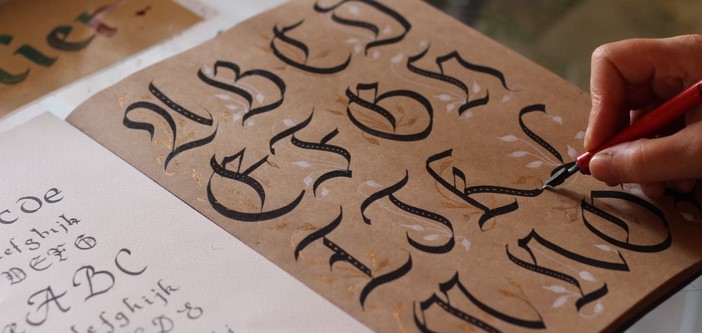 A B C D
E F G H
I J K L
M N O
cde
efghijk
DEFG
ABC
defghijk